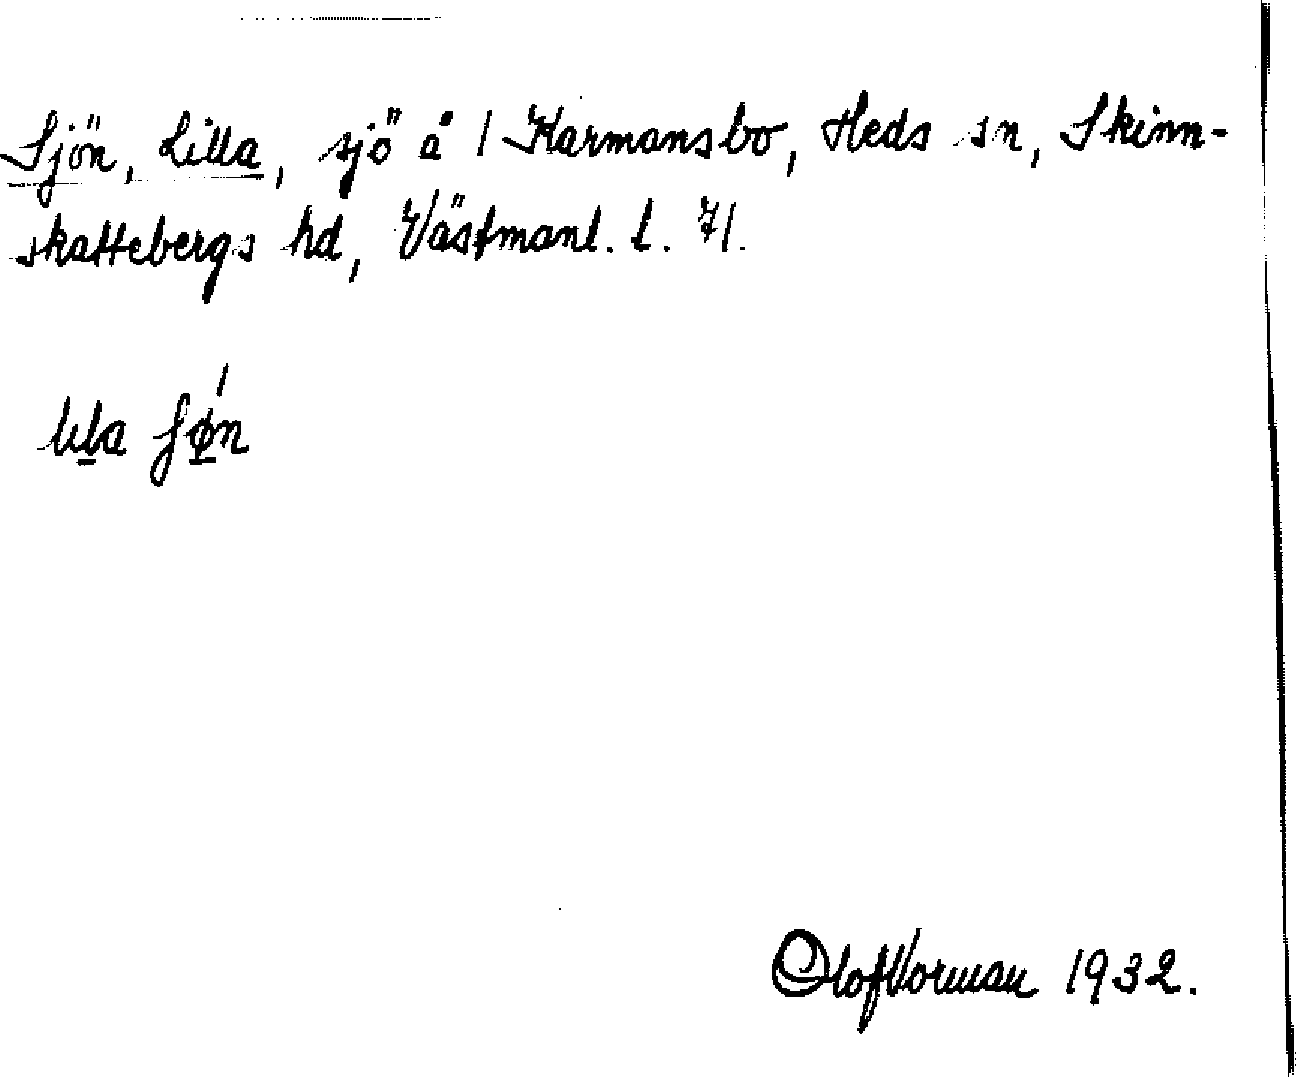 Sjön, Lilla, sjö å 1 Karmansbo, Heds sn, Skinn-
skattebergs hd, Västmanl. l. 71.
Olof Vorman 1932.